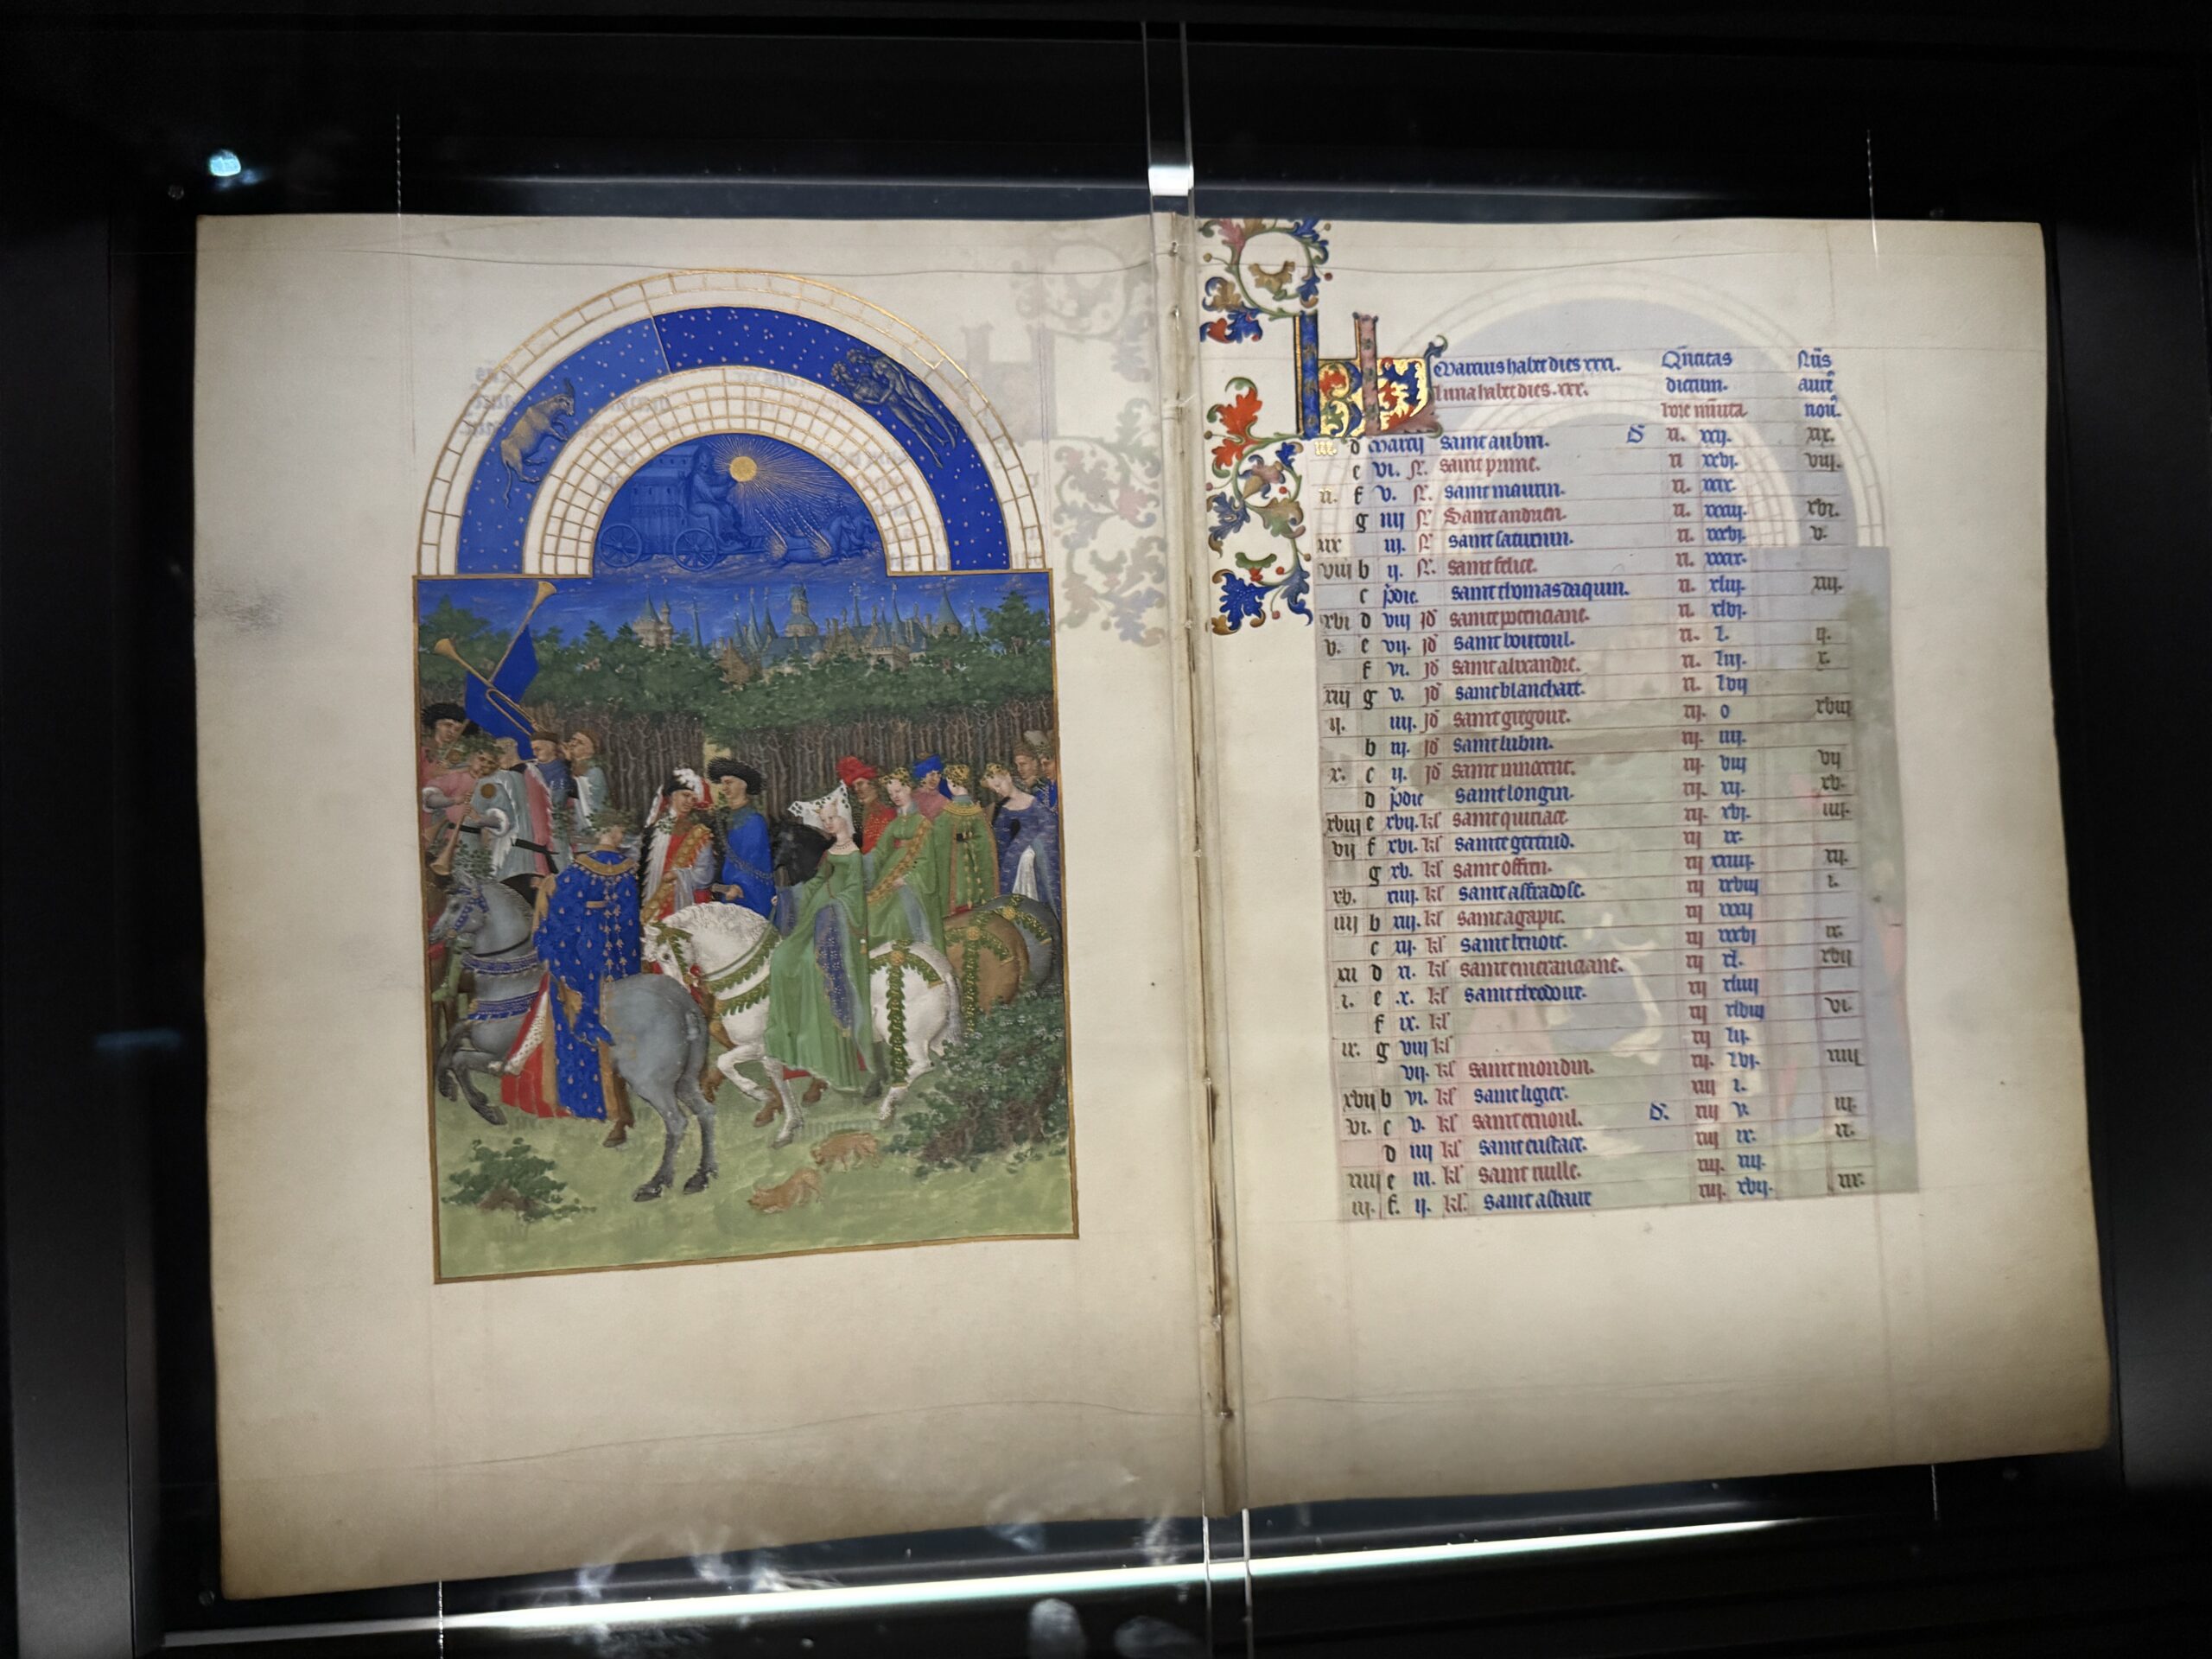 Marcius habet dies xxxi. Quātitas Nūs
Luna habet dies .xxx. dierum. aure
hore minuta nou.
iii. d Marcij saint aubin. S xi. xxij. xix.
e vi. N. saint prime. xi xxvi. viij.
xi. f v. N. saint maurin. xi. xxix.
g iiij N. Saint anduen. xi. xxxij. xvi.
xix iij. N. saint saturnin. xi. xxxvi. v.
viij b ij. N. saint felice. xi. xxxix.
c pdie. saint thomas daquin. xi. xliij. xiij.
xvi d viij jd sainte potenciane. xi. xlvi.
v. e vij. jd saint boutoul. xi. l. ij.
f vi. jd saint alixandre. xi. liij. x.
xiij g v. jd saint blanchart. xi. lvij
ij. iiij. jd saint gregoire. xij. o xviij
b iij. jd saint lubin. xij. iiij.
x. c ij. jd saint innocent. xij. viij vij
d pdie saint longin. xij. xij. xv.
xviij e xvij. kl saint quiriace xij. xvi. iiij.
vij f xvi. kl sainte gertrud. xij xx.
g xv. kl saint offrien. xij xxiiij. xij.
xv. xiiij. kl saint affradose. xij xxviij i.
iiij b xiij. kl saint agapit. xij xxxij
c xij. kl saint benoit. xij xxxvi ix.
xij d xi. kl sainte emeranciane. xij xl. xvij
i. e .x. kl saint theodore. xij xliiij
f ix. kl xij xlviij vi.
ix. g viij kl xij lij.
vij. kl saint mondin. xij. lvi. xiiij
xvij b vi. kl saint ligier. xiij i.
vi. c v. kl saint ernoul. S. xiij v. iij.
d iiij kl saint eustace. xiij ix. xi.
xiiij e iij. kl saint nulle. xiij. xiij.
iij. f. ij. kl. saint xiij. xvij. xix.